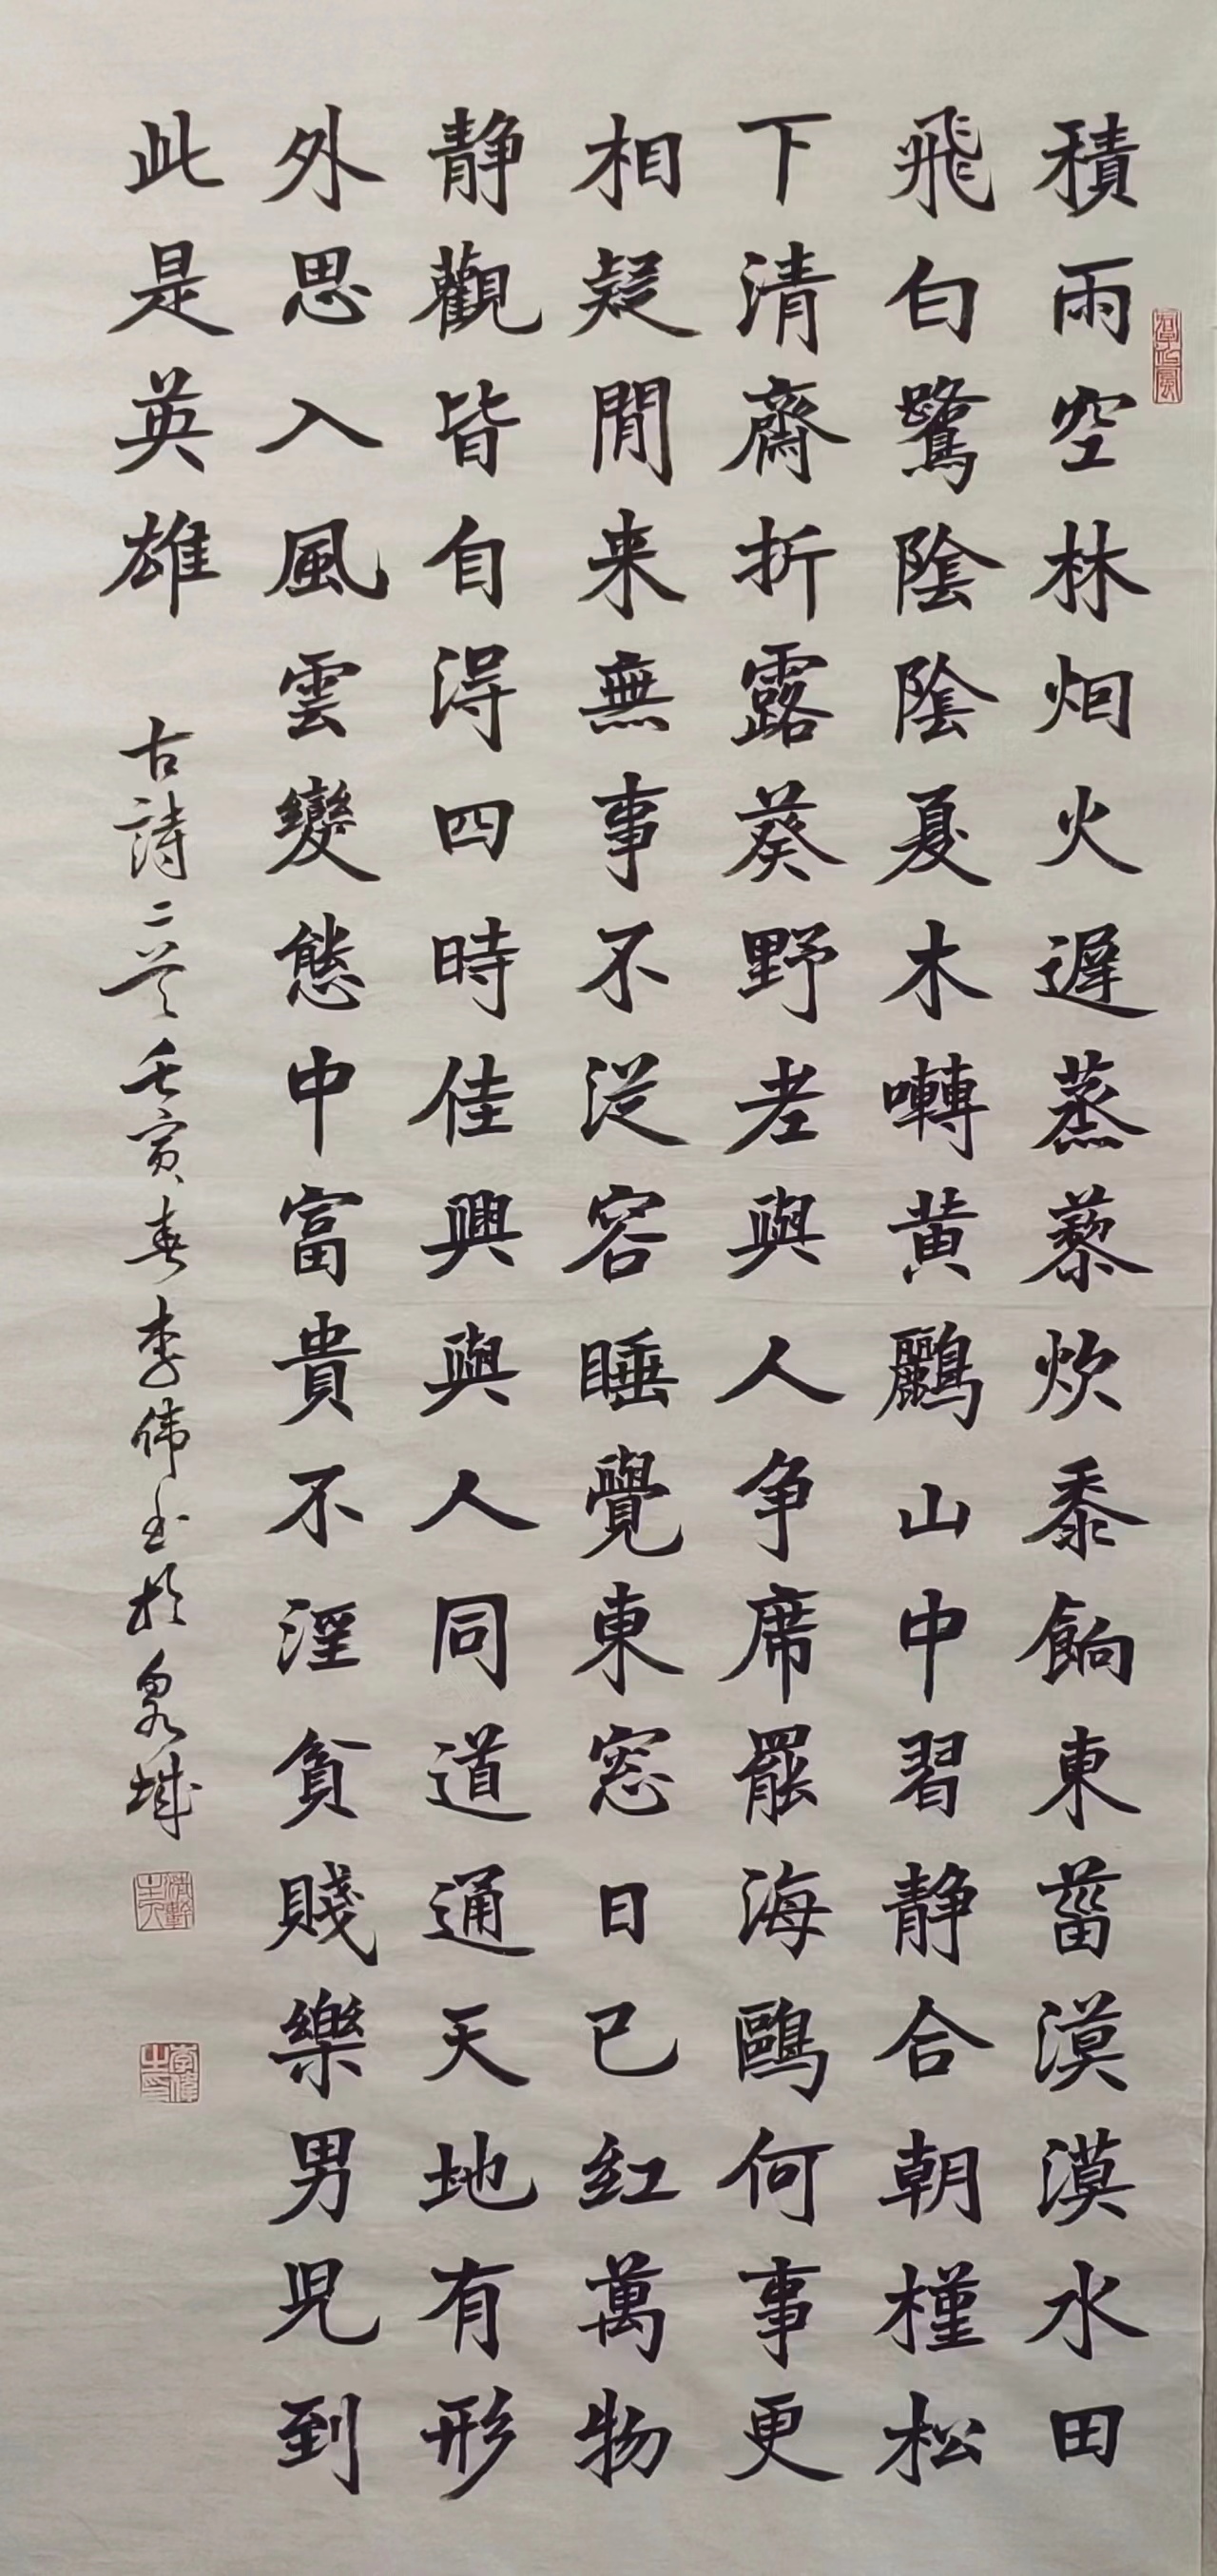 積雨空林烟火遲蒸藜炊黍餉東菑漠漠水田
飛白鷺陰陰夏木囀黃鸝山中習静合朝槿松
下清齋折露葵野老與人争席罷海鷗何事更
相疑閒来無事不從容睡覺東窓日已紅萬物
静觀皆自得四時佳興與人同道通天地有形
外思入風雲變態中富貴不淫貧賤樂男兒到
此是英雄
古詩二首壬寅春李伟書於泉城